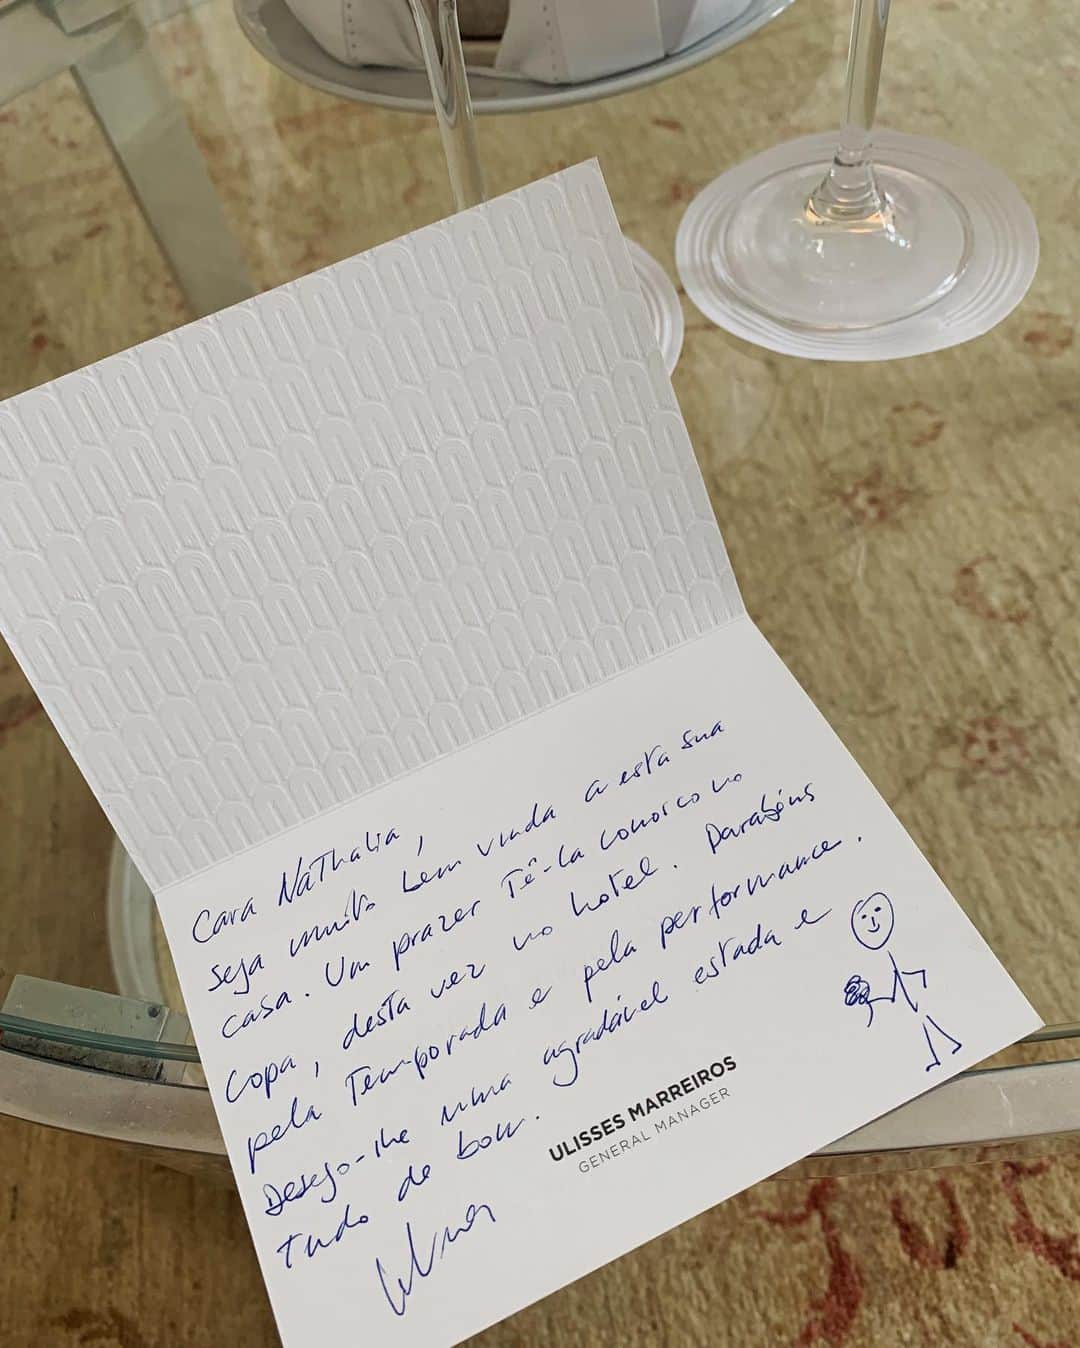 Cara Nathalia,
seja muito bem vinda a esta sua
casa. Um prazer tê-la conosco no
Copa, desta vez no hotel. Parabéns
pela temporada e pela performance.
Desejo-lhe uma agradável estada e
tudo de bom.
ULISSES MARREIROS
GENERAL MANAGER